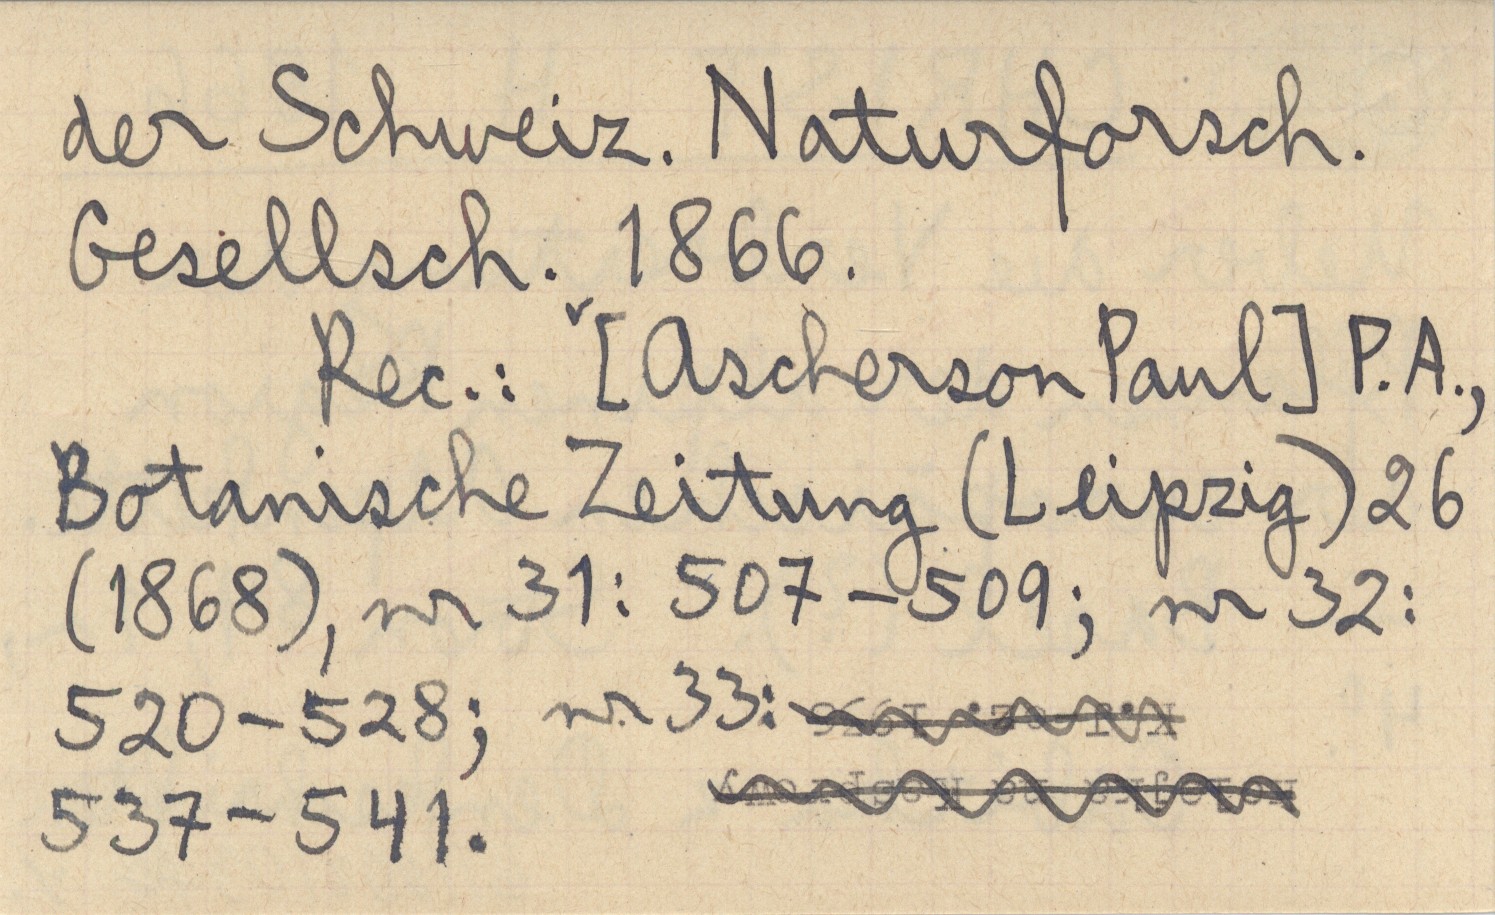 der Schweiz. Naturforsch.
Gesellsch. 1866.
Rec.: [Ascherson Paul] P.A.,
Botanische Zeitung (Leipzig) 26
(1868), nr 31: 507-509; nr 32:
520-528; nr 33:
537-541.